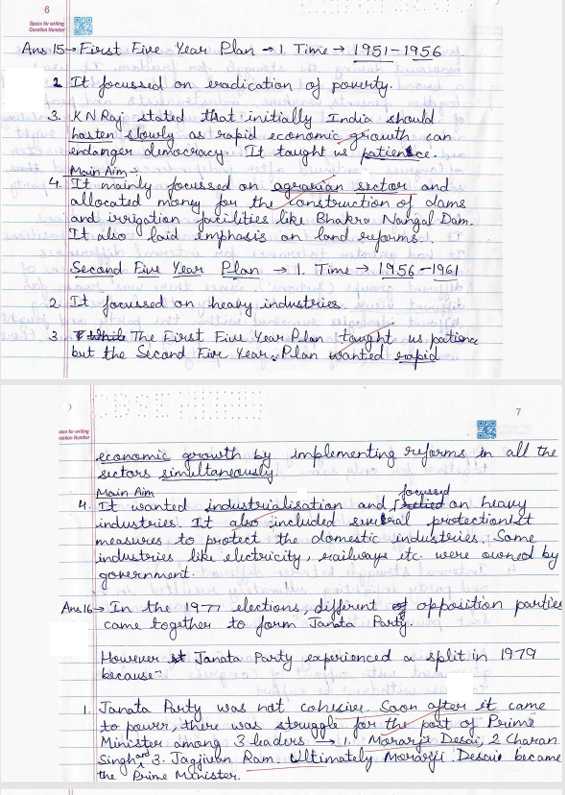 6
Space for writing
Question Number
Ans 15→ First Five Year Plan → 1. Time → 1951-1956
2 It focussed on eradication of poverty.
3. K N Raj stated that initially India should
hasten slowly as rapid economic growth can
endanger democracy. It taught us patience.
Main Aim :-
4. It mainly focussed on agrarian sector and
allocated money for the construction of dams
and irrigation facilities like Bhakra Nangal Dam.
It also laid emphasis on land reforms.
Second Five Year Plan → 1. Time → 1956-1961
2. It focussed on heavy industries
3. While The First Five Year Plan taught us patience
but the Second Five Year Plan wanted rapid
7
economic growth by implementing reforms in all the
sectors simultaneously
Main Aim
4. It wanted industrialisation and focussed on heavy
industries. It also included several protectionist
measures to protect the domestic industries. Some
industries like electricity, railways etc. were owned by
government.
Ans 16→ In the 1977 elections, different of opposition parties
came together to form Janata Party.
However Janata Party experienced a split in 1979
because-
1. Janata Party was not cohesive. Soon after it came
to power, there was struggle for the post of Prime
Minister among 3 leaders → 1. Morarji Desai, 2 Charan
Singh and 3. Jagjivan Ram. Ultimately Morarji Desai became
the Prime Minister.